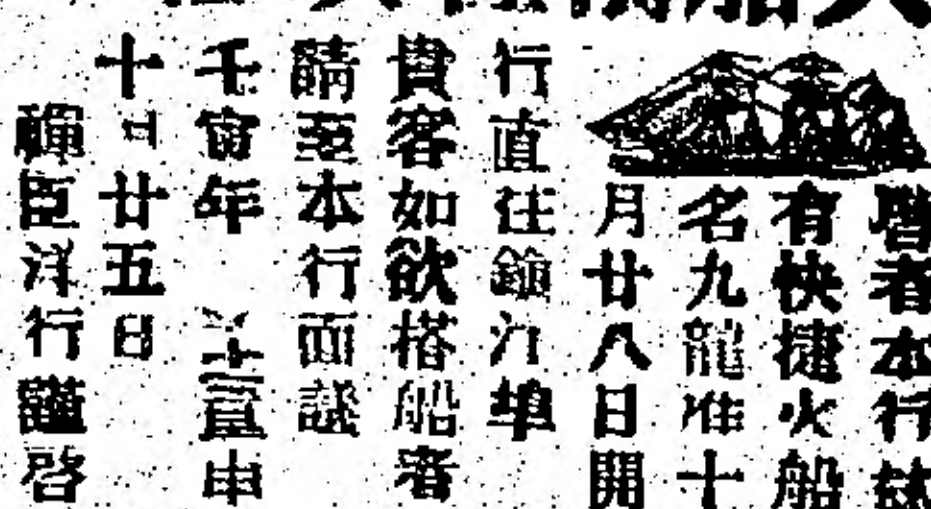 啓者本行茲
有快捷火船
名九龍准十
月廿八日開
行直往鎮江埠
貴客如欲搭船者
請至本行面議
壬寅年 申
十月廿五日
禪臣洋行謹啓